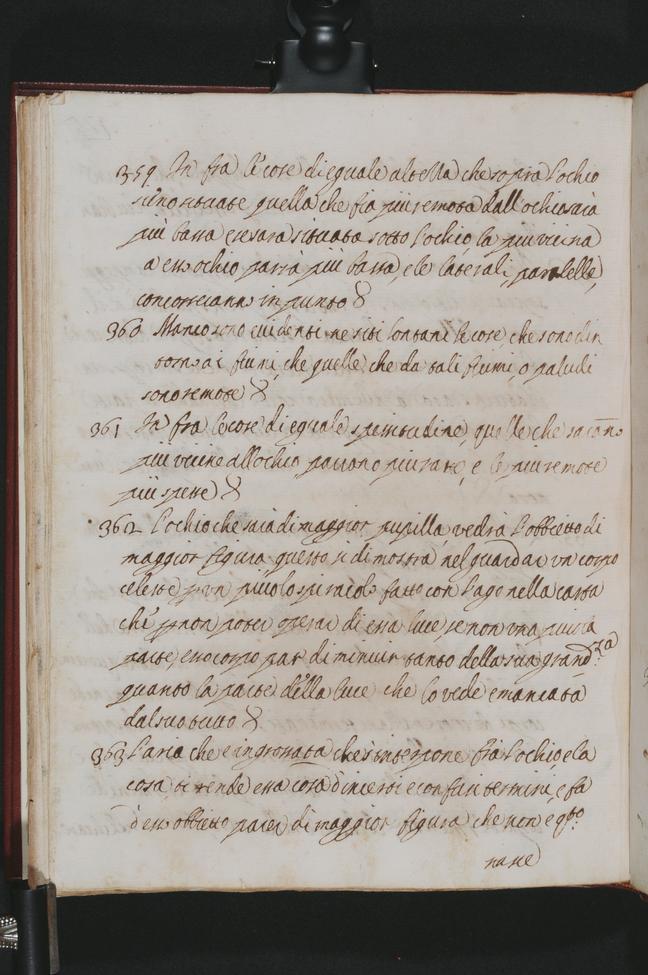 359 In fra le cose di eguale altezza che sopra l'ochio
sieno situate quella che fia piu remota dall'ochio sara
piu bassa e se sara situata sotto l'ochio, la piu vicina
a esso ochio parra piu bassa, e le laterali, paralelle,
concorrerano in punto
360 Manco sono evidenti ne siti lontani le cose, che sono din
torno a i fiumi, che quelle che da tali fiumi, o paludi
sono remote
361 In fra le cose di eguale spessitudine quelle che saranō
piu vicine all'ochio, parano piu rare, e le piu remote
piu spesse
362 L'ochio che sara di maggior pupilla vedrà l'obbietto di
maggior figura questo si dimostra nel guardar un corpo
celeste p un picolo spiracolo fatto con l'ago nella carta
che p non poter operar di essa luce se non una picola
parte, esso corpo par diminuir tanto della sua grandza
quanto la parte della luce che lo vede e mancata
dal suo tutto
363 L'aria che e ingrossata che s'interpone fra l'ochio e la
cosa, ci rende essa cosa d'incerti e confusi termini, e fa
d'esso obbietto parer di maggior figura che non e qto
nasce